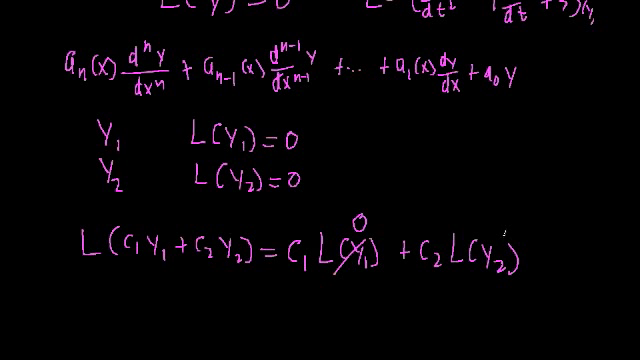 L(Y) = 0
a_n(x) d^n y/dx^n + a_{n-1}(x) d^{n-1} y/dx^{n-1} + ... + a_1(x) dy/dx + a_0 y
Y_1 L(Y_1) = 0
Y_2 L(Y_2) = 0
0
L(C_1 Y_1 + C_2 Y_2) = C_1 L(Y_1) + C_2 L(Y_2)